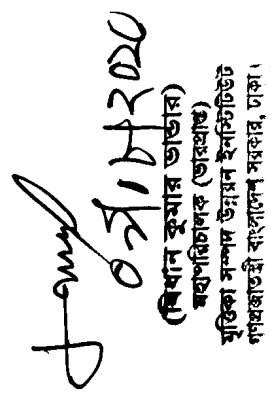 ০৭/৮/২০২০
(বিধান কুমার ভান্ডার)
মহাপরিচালক (ভারপ্রাপ্ত)
মৃত্তিকা সম্পদ উন্নয়ন ইনস্টিটিউট
গণপ্রজাতন্ত্রী বাংলাদেশ সরকার, ঢাকা।